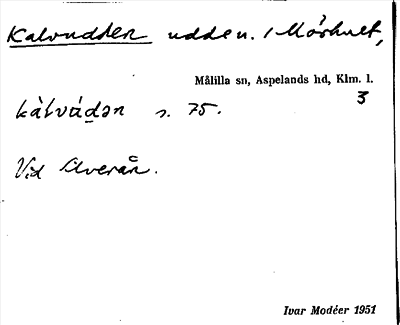 Kalvudden udden. i Mörhult,
Målilla sn, Aspelands hd, Klm. l.
3
kàlvúdən s. 75.
Vid Silverån.
Ivar Modéer 1951